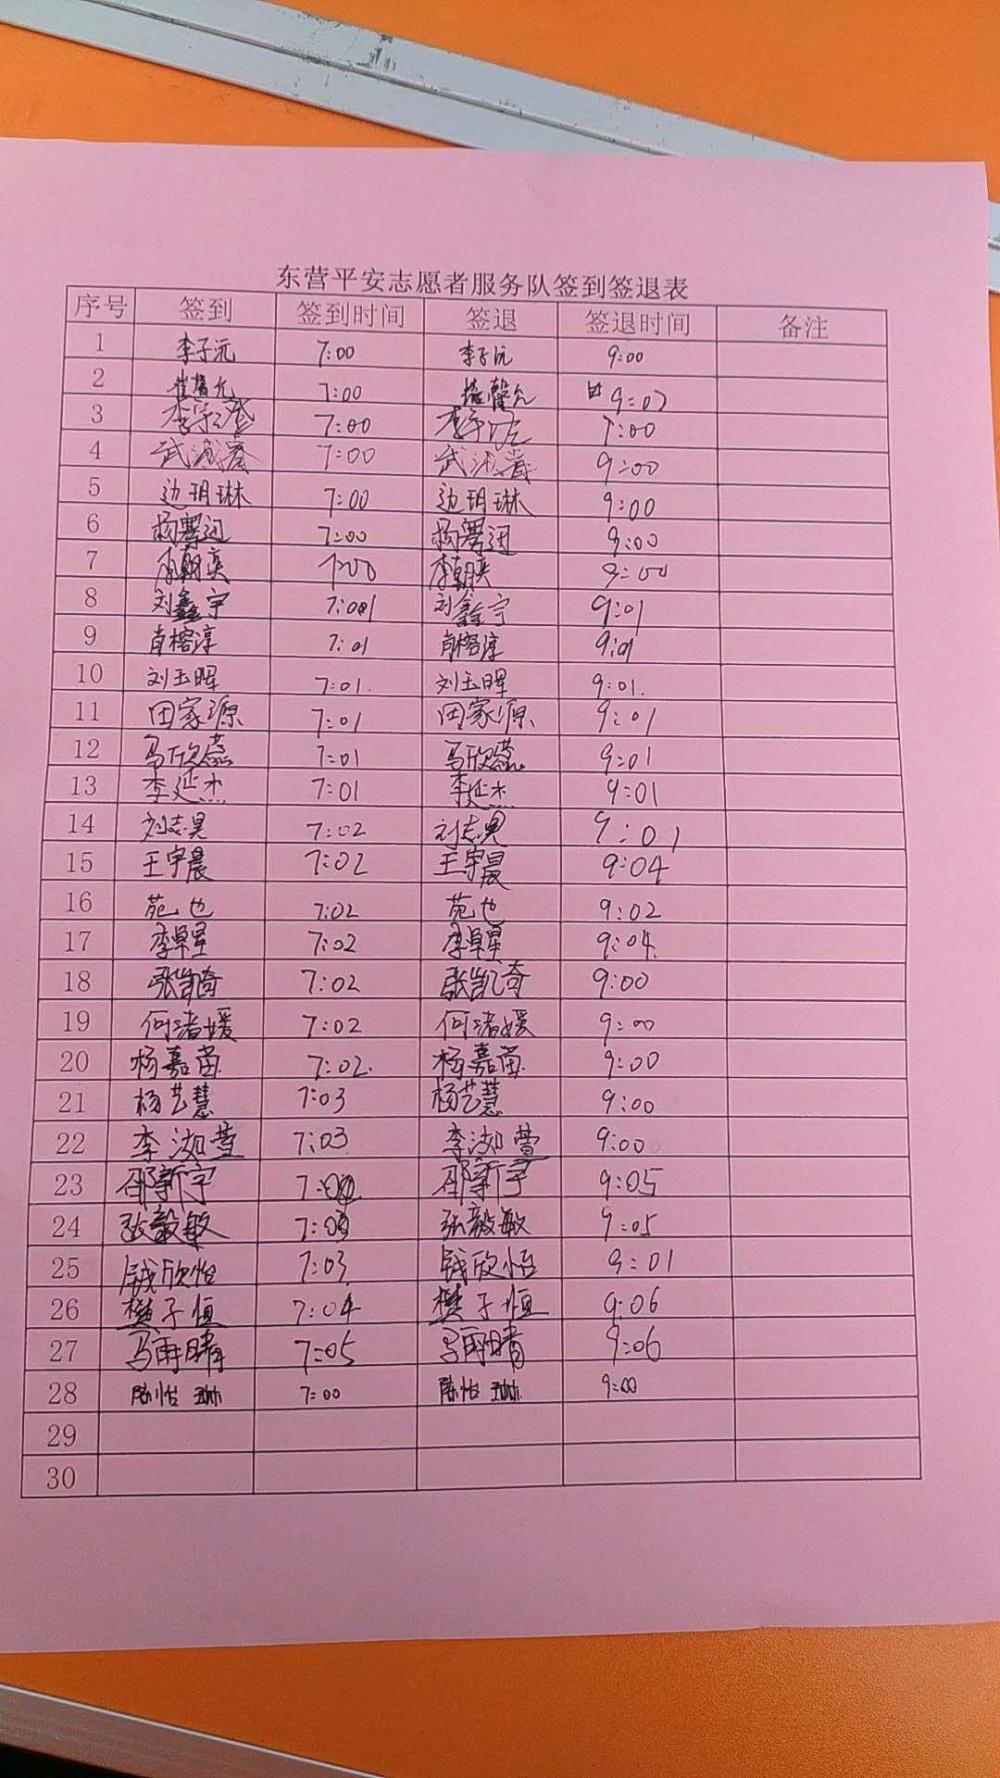 东营平安志愿者服务队签到签退表
序号 签到 签到时间 签退 签退时间 备注
1 李子沅 7:00 李子沅 9:00
2 7:00 9:07
3 7:00 :00
4 7:00 9:00
5 边玥琳 7:00 边玥琳 9:00
6 7:00 9:00
7 李朝奕 7:00 李朝奕 9:00
8 刘鑫宇 7:01 刘鑫宇 9:01
9 肖榕淳 7:01 肖榕淳 9:01
10 刘玉晖 7:01. 刘玉晖 9:01.
11 田家源 7:01 田家源 9:01
12 马欣蕊 7:01 马欣蕊 9:01
13 李延杰 7:01 李延杰 9:01
14 刘志昊 7:02 刘志昊 9:01
15 王宇晨 7:02 王宇晨 9:04
16 苑也 7:02 苑也 9:02
17 7:02 9:04
18 张凯奇 7:02 张凯奇 9:00
19 何渚媛 7:02 何渚媛 9:00
20 杨嘉苗 7:02. 杨嘉苗 9:00
21 杨艺慧 7:03 杨艺慧 9:00
22 李淑萱 7:03 李淑萱 9:00
23 邵新宇 邵新宇 9:05
24 张毅敏 7:03 张毅敏 9:05
25 钱欣怡 7:03 钱欣怡 9:01
26 樊子恒 7:04 樊子恒 9:06
27 马雨晴 7:05 马雨晴 9:06
28 陈怡琳 7:00 陈怡琳 9:00
29
30